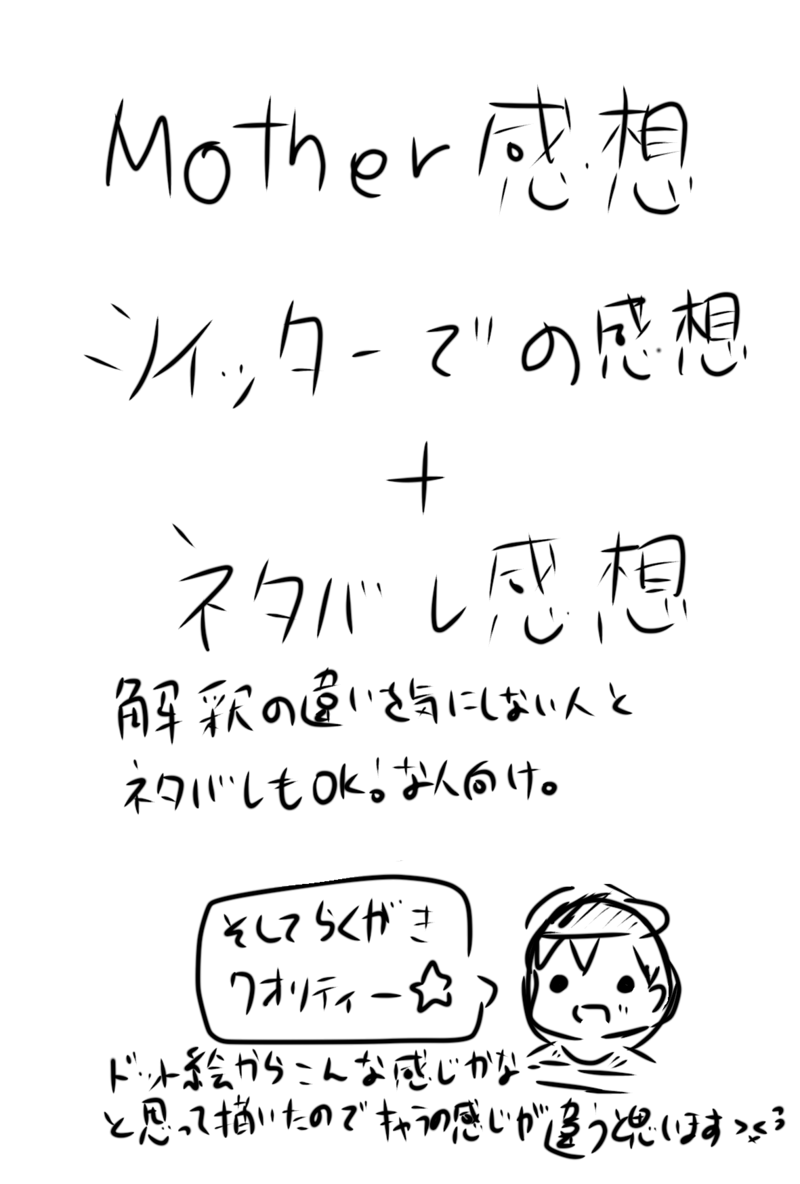 Mother感想
ツイッターでの感想
+
ネタバレ感想
解釈の違いを気にしない人と
ネタバレもOK!な人向け。
そしてらくがき
クオリティー☆
ドット絵からこんな感じかな
と思って描いたのでキャラの感じが違うと思います